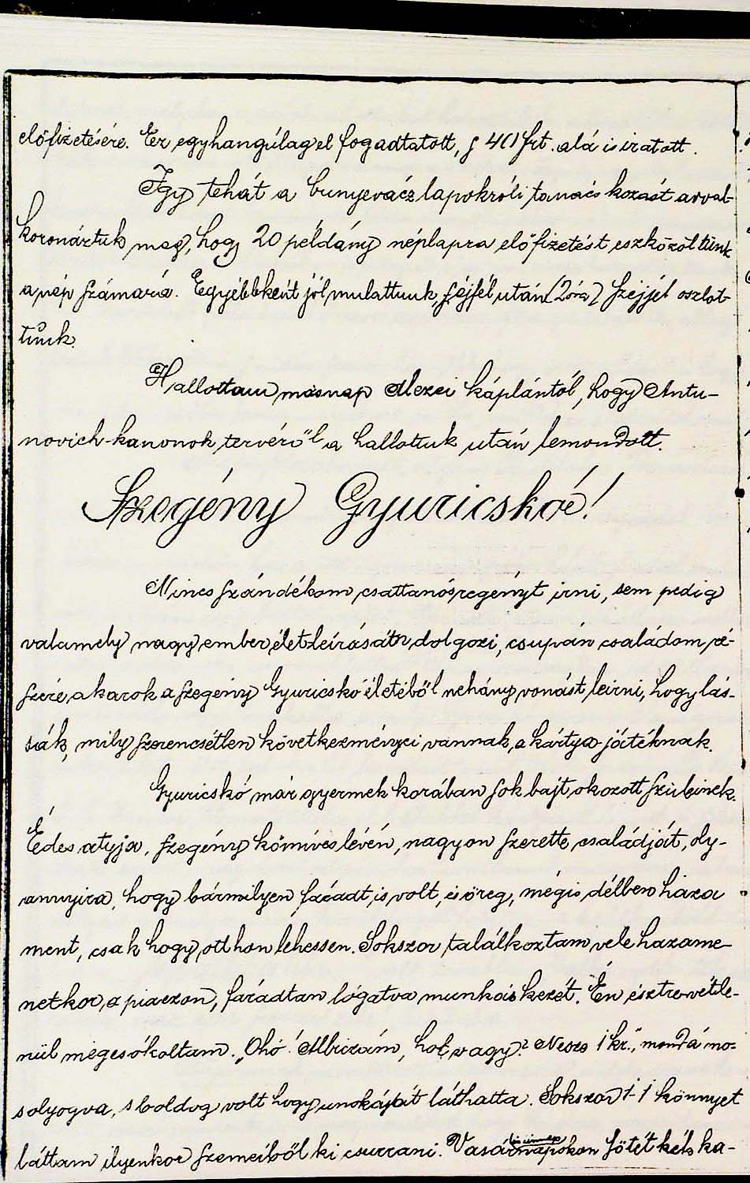 előfizetésére. Ez egyhangúlag el fogadtatott, s 40 frt. alá is iratott.
Igy tehát a bunyevácz lapokróli tanácskozást avval
koronáztuk meg, hogy 20 példány néplapra előfizetést eszközöltünk
a nép számára. Egyébbként jól mulattunk, s éjfél után (2 óra) széjjel oszlot-
tunk.
Hallottam másnap Mezei káplántól, hogy Antu-
novich kanonok tervéről a hallottuk után lemondott.
Szegény Gyuricskó!
Nincs szándékom csattanós regényt irni, sem pedig
valamely nagy ember életleirásán dolgozi, csupán családom ré-
szére akarok a szegény Gyuricskó életéből nehány vonást leirni, hogy lás-
sák, mily szerencsétlen következményei vannak a kártya játéknak.
Gyuricskó már gyermek korában sok bajt okozott szüleinek.
Édes atyja, szegény kőmives lévén, nagyon szerette családját, oly-
annyira, hogy bármilyen fáradt is volt, és öreg, mégis délben haza
ment, csak hogy otthon lehessen. Sokszor találkoztam vele hazame-
netkor a piaczon, fáradtan lógatva munkás kezét. Én észrevétle-
nül megcsókoltam. „Ohó! Albiczám, hol vagy? Nesze 1 kr.", mondá mo-
solyogva, s boldog volt hogy unokáját láthatta. Sokszor 1-1 könnyet
láttam ilyenkor szemeiből ki csurrani. Vasár és ünnepnapokon sötét kék ka-